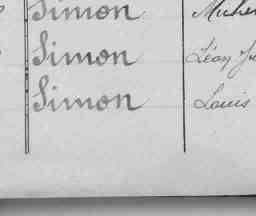 Simon Miche
Simon Léon Ju
Simon Louis